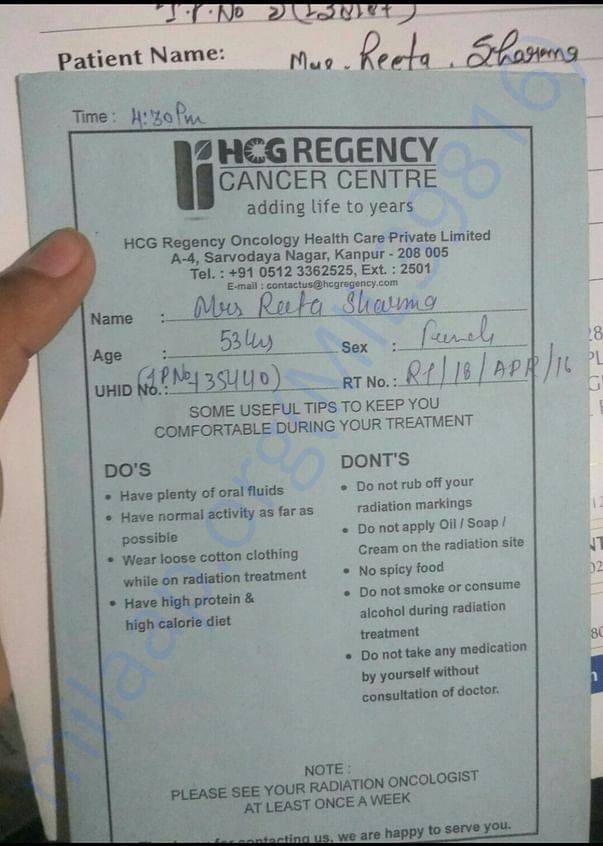 I.P. No 2(138187)
Patient Name: Mrs. Reeta. Sharma
Time : 4:30 Pm
HCG REGENCY
CANCER CENTRE
adding life to years
HCG Regency Oncology Health Care Private Limited
A-4, Sarvodaya Nagar, Kanpur - 208 005
Tel. : +91 0512 3362525, Ext. : 2501
E-mail : contactus@hcgregency.com
Name : Mrs Reeta Sharma
Age : 53 Sex : Female
UHID No.: (I.P No 135440) RT No.: RT/18/APR/16
SOME USEFUL TIPS TO KEEP YOU
COMFORTABLE DURING YOUR TREATMENT
DO'S
• Have plenty of oral fluids
• Have normal activity as far as
possible
• Wear loose cotton clothing
while on radiation treatment
• Have high protein &
high calorie diet
DONT'S
• Do not rub off your
radiation markings
• Do not apply Oil / Soap /
Cream on the radiation site
• No spicy food
• Do not smoke or consume
alcohol during radiation
treatment
• Do not take any medication
by yourself without
consultation of doctor.
NOTE :
PLEASE SEE YOUR RADIATION ONCOLOGIST
AT LEAST ONCE A WEEK
for contacting us, we are happy to serve you.